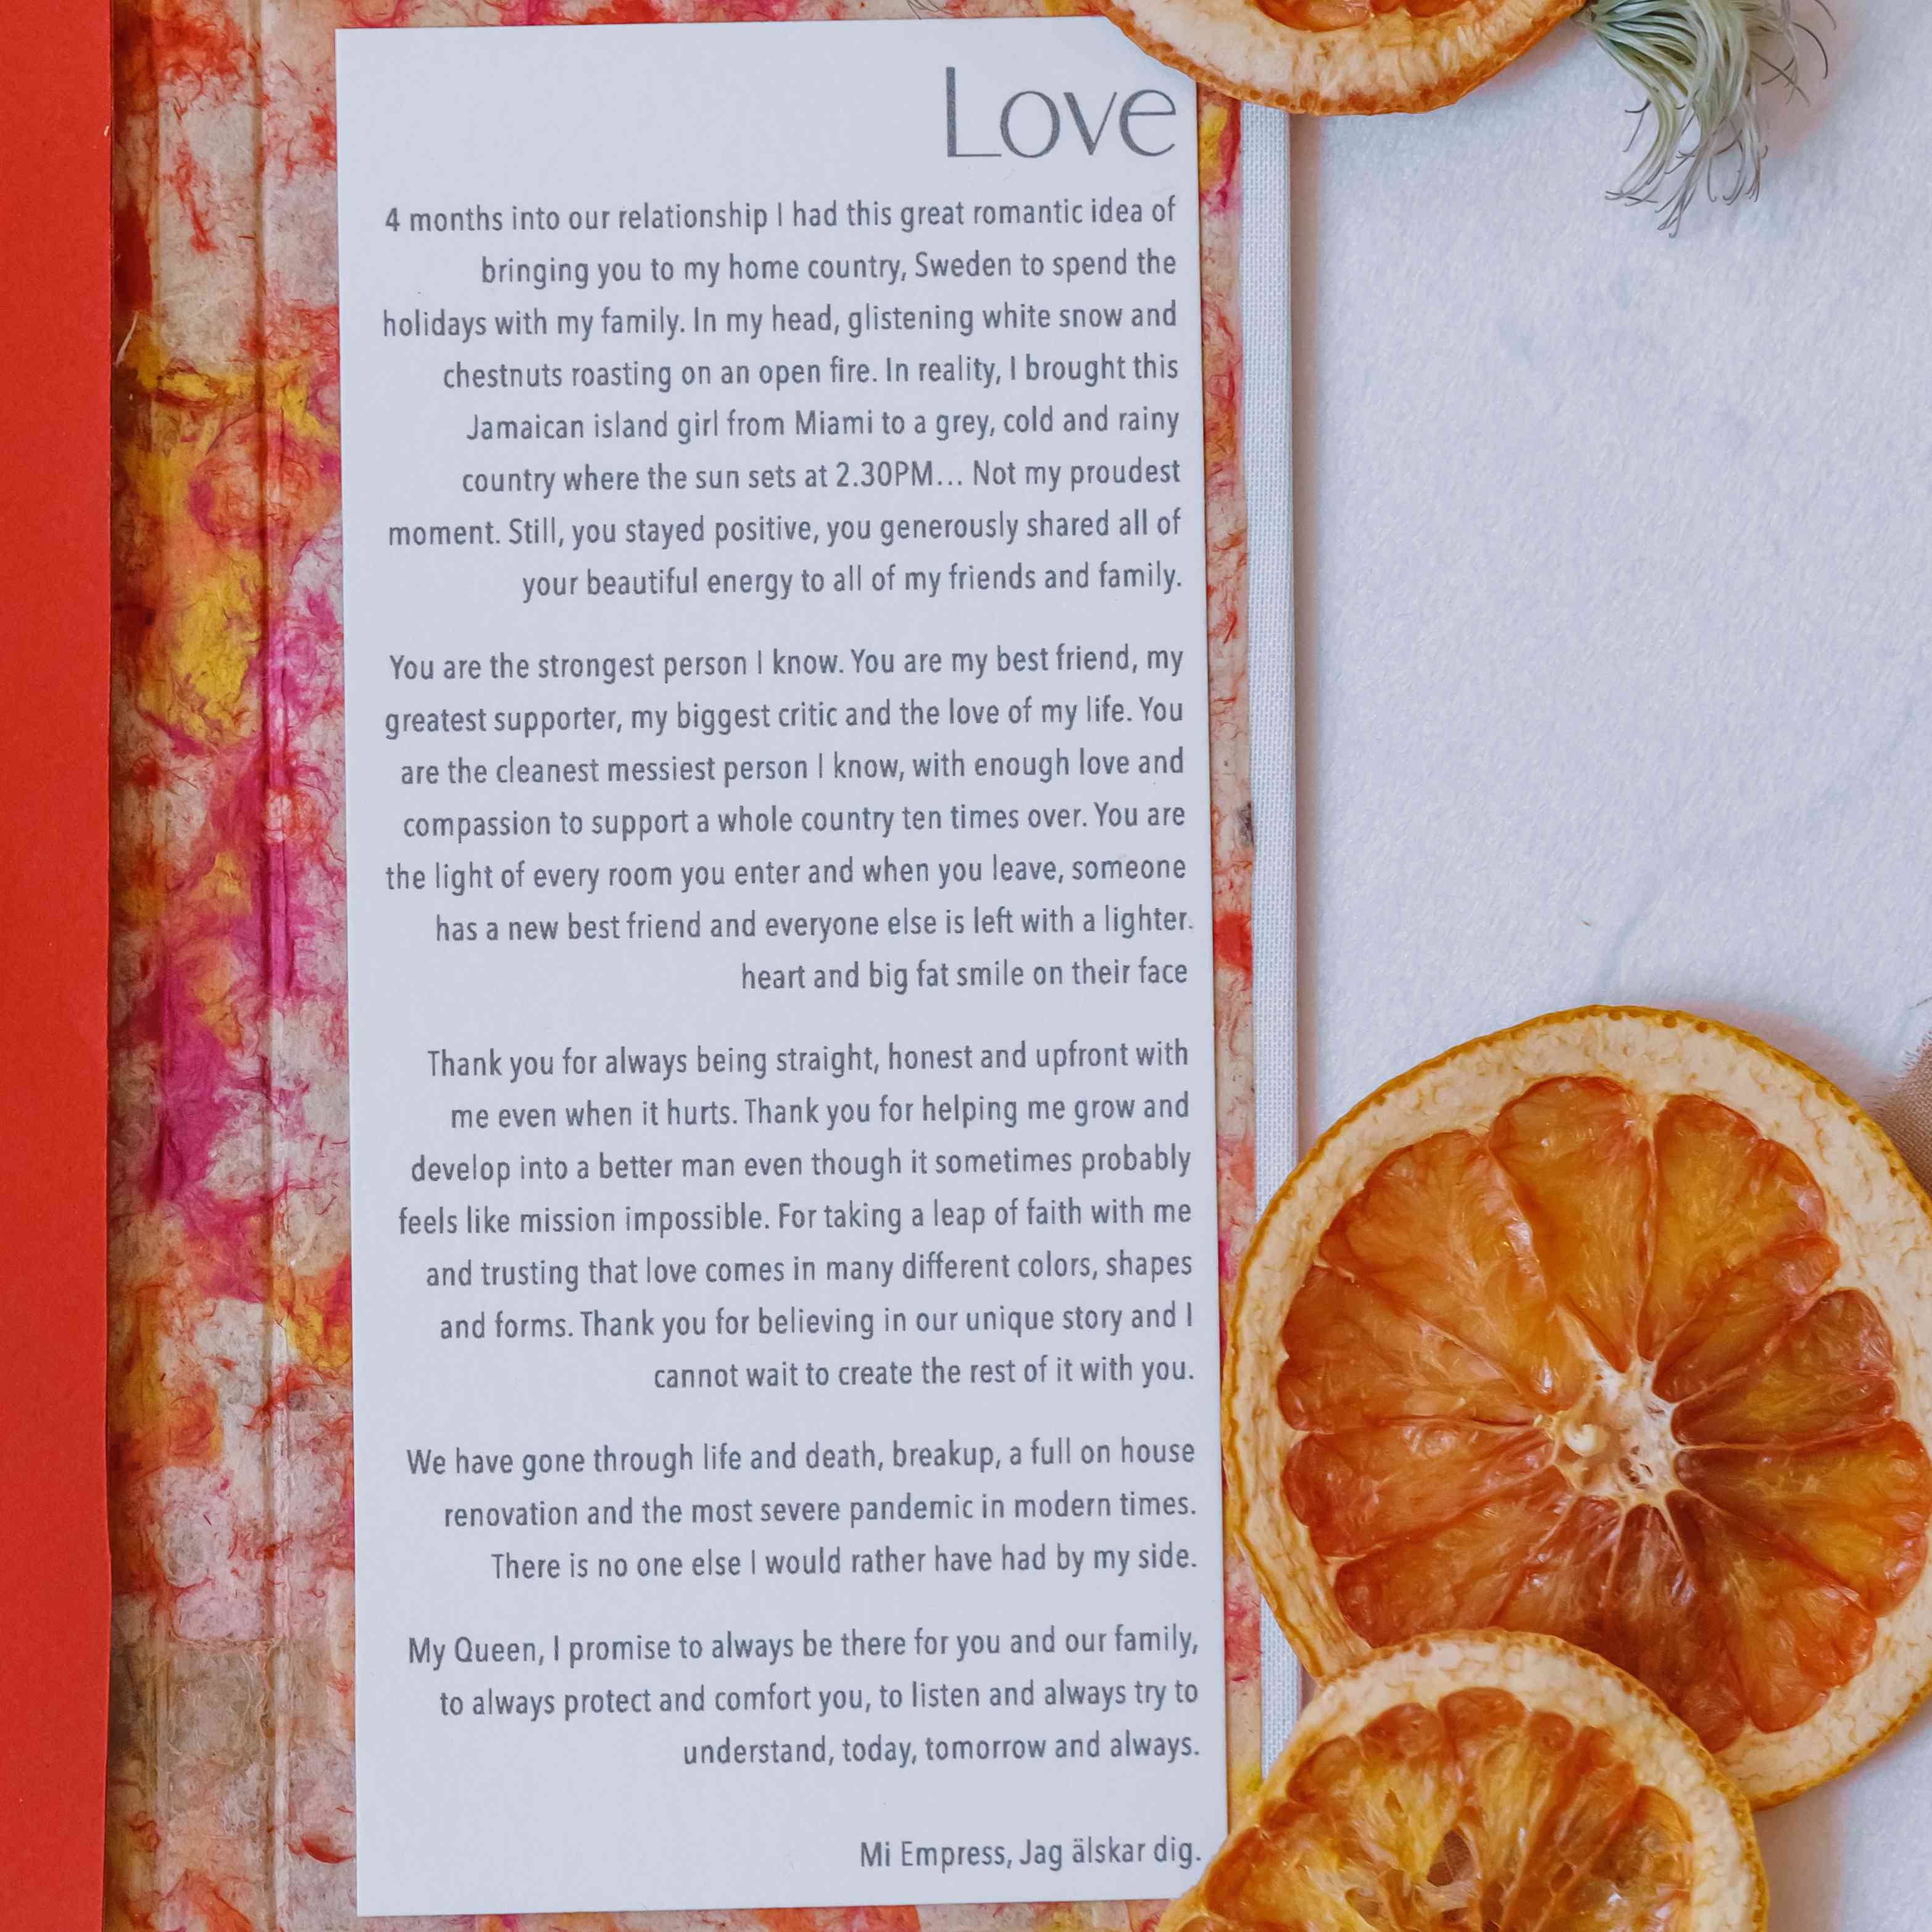 Love
4 months into our relationship I had this great romantic idea of
bringing you to my home country, Sweden to spend the
holidays with my family. In my head, glistening white snow and
chestnuts roasting on an open fire. In reality, I brought this
Jamaican island girl from Miami to a grey, cold and rainy
country where the sun sets at 2.30PM... Not my proudest
moment. Still, you stayed positive, you generously shared all of
your beautiful energy to all of my friends and family.
You are the strongest person I know. You are my best friend, my
greatest supporter, my biggest critic and the love of my life. You
are the cleanest messiest person I know, with enough love and
compassion to support a whole country ten times over. You are
the light of every room you enter and when you leave, someone
has a new best friend and everyone else is left with a lighter.
heart and big fat smile on their face
Thank you for always being straight, honest and upfront with
me even when it hurts. Thank you for helping me grow and
develop into a better man even though it sometimes probably
feels like mission impossible. For taking a leap of faith with me
and trusting that love comes in many different colors, shapes
and forms. Thank you for believing in our unique story and I
cannot wait to create the rest of it with you.
We have gone through life and death, breakup, a full on house
renovation and the most severe pandemic in modern times.
There is no one else I would rather have had by my side.
My Queen, I promise to always be there for you and our family,
to always protect and comfort you, to listen and always try to
understand, today, tomorrow and always.
Mi Empress, Jag älskar dig.